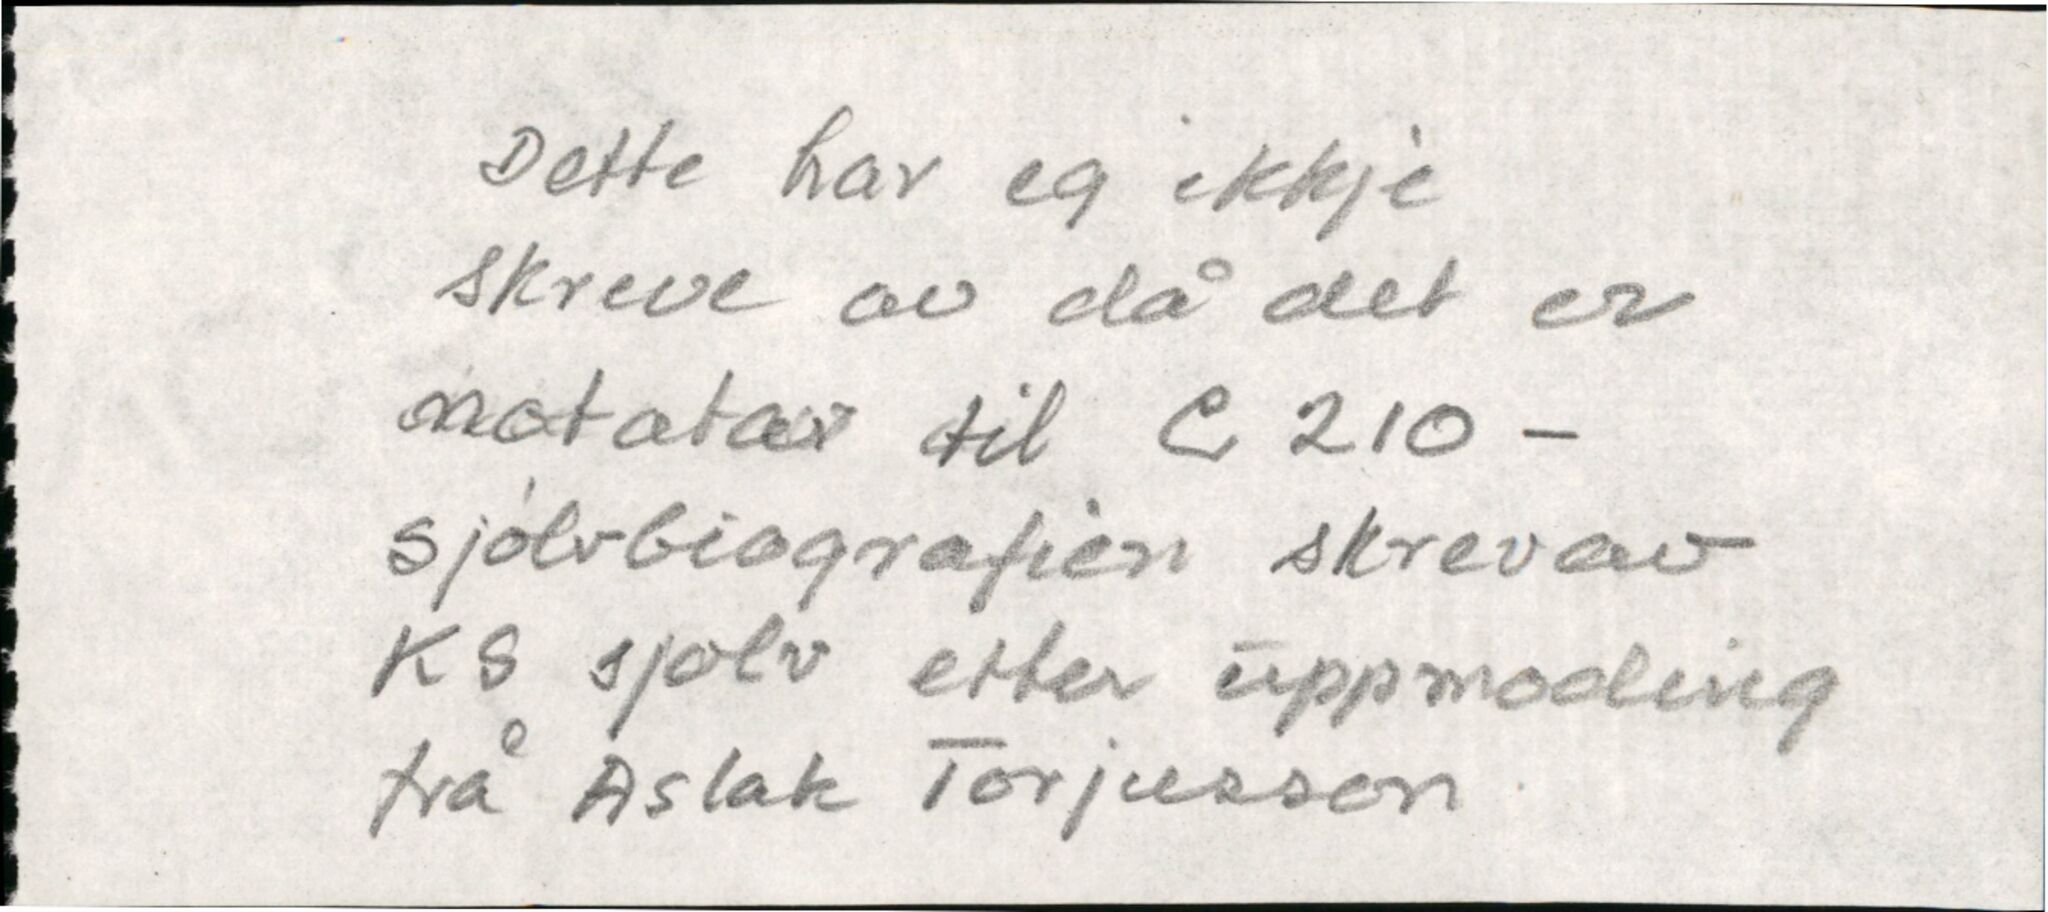 Dette har eg ikkje
skreve av då det er
notatar til C 210 –
sjølvbiografien skrev av
KS sjølv etter uppmoding
frå Aslak Torjusson